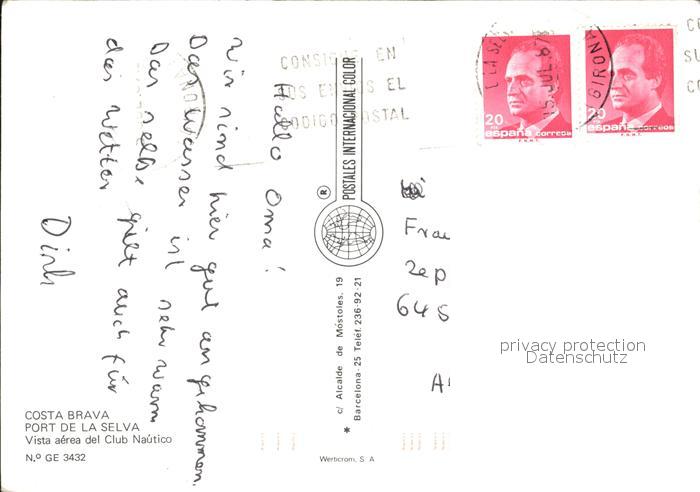 Hallo Oma!
Wir sind hier gut angekommen.
Das Wasser ist sehr warm
Das selbe gilt auch für
das Wetter
Dirk
COSTA BRAVA
PORT DE LA SELVA
Vista aérea del Club Naútico
N.º GE 3432
POSTALES INTERNACIONAL COLOR
®
c/ Alcalde de Móstoles, 19
Barcelona-25 Teléf. 236-92-21
Werticrom, S. A
CONSIGNE EN
EL
CODIGO POSTAL
GIRONA
20
españa correos
F.N.M.T.
20
españa correos
F.N.M.T.
Frau
645
privacy protection
Datenschutz